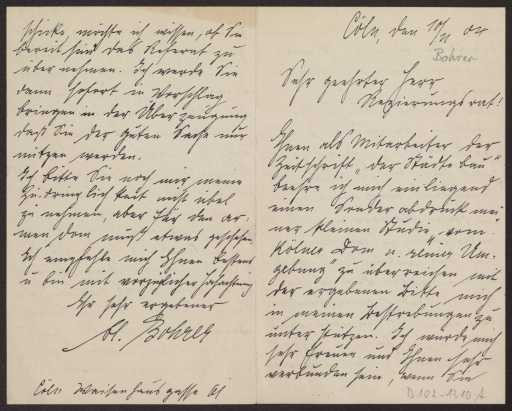 Cöln, den 10/11 04
Bohrer
Sehr geehrter Herr
Regierungsrat!
Ihnen als Mitarbeiter der
Zeitschrift „der Städtebau"
beehre ich mich einliegend
einen Sonderabdruck mei
ner kleinen Studie „vom
Kölner Dom u. Umgebung" zu überreichen mit
der ergebenen Bitte mich
in meinen Bestrebungen zu
unterstützen. Ich würde mich
sehr freuen und Ihnen sehr
verbunden sein, wenn Sie
D 102-1210 A
schicke, möchte ich wissen, ob Sie
bereit sind das Referat zu
übernehmen. Ich werde Sie
dann sofort in Vorschlag
bringen in der Überzeugung
daß Sie der guten Sache nur
nützen werden.
Ich bitte Sie noch mir meine
Zudringlichkeit nicht übel
zu nehmen, aber für den ar-
men Dom muß etwas geschehen
Ich empfehle mich Ihnen bestens
u bin mit vorzüglicher Hochachtung
Ihr sehr ergebener
Bohrer
Cöln Waisenhausgasse